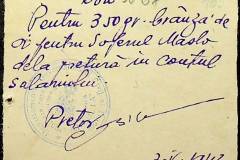 Bon
Pentru 350 gr. brânză de
oi pentru Soferul Maslo
dela pretură în contul
salariului
Pretor